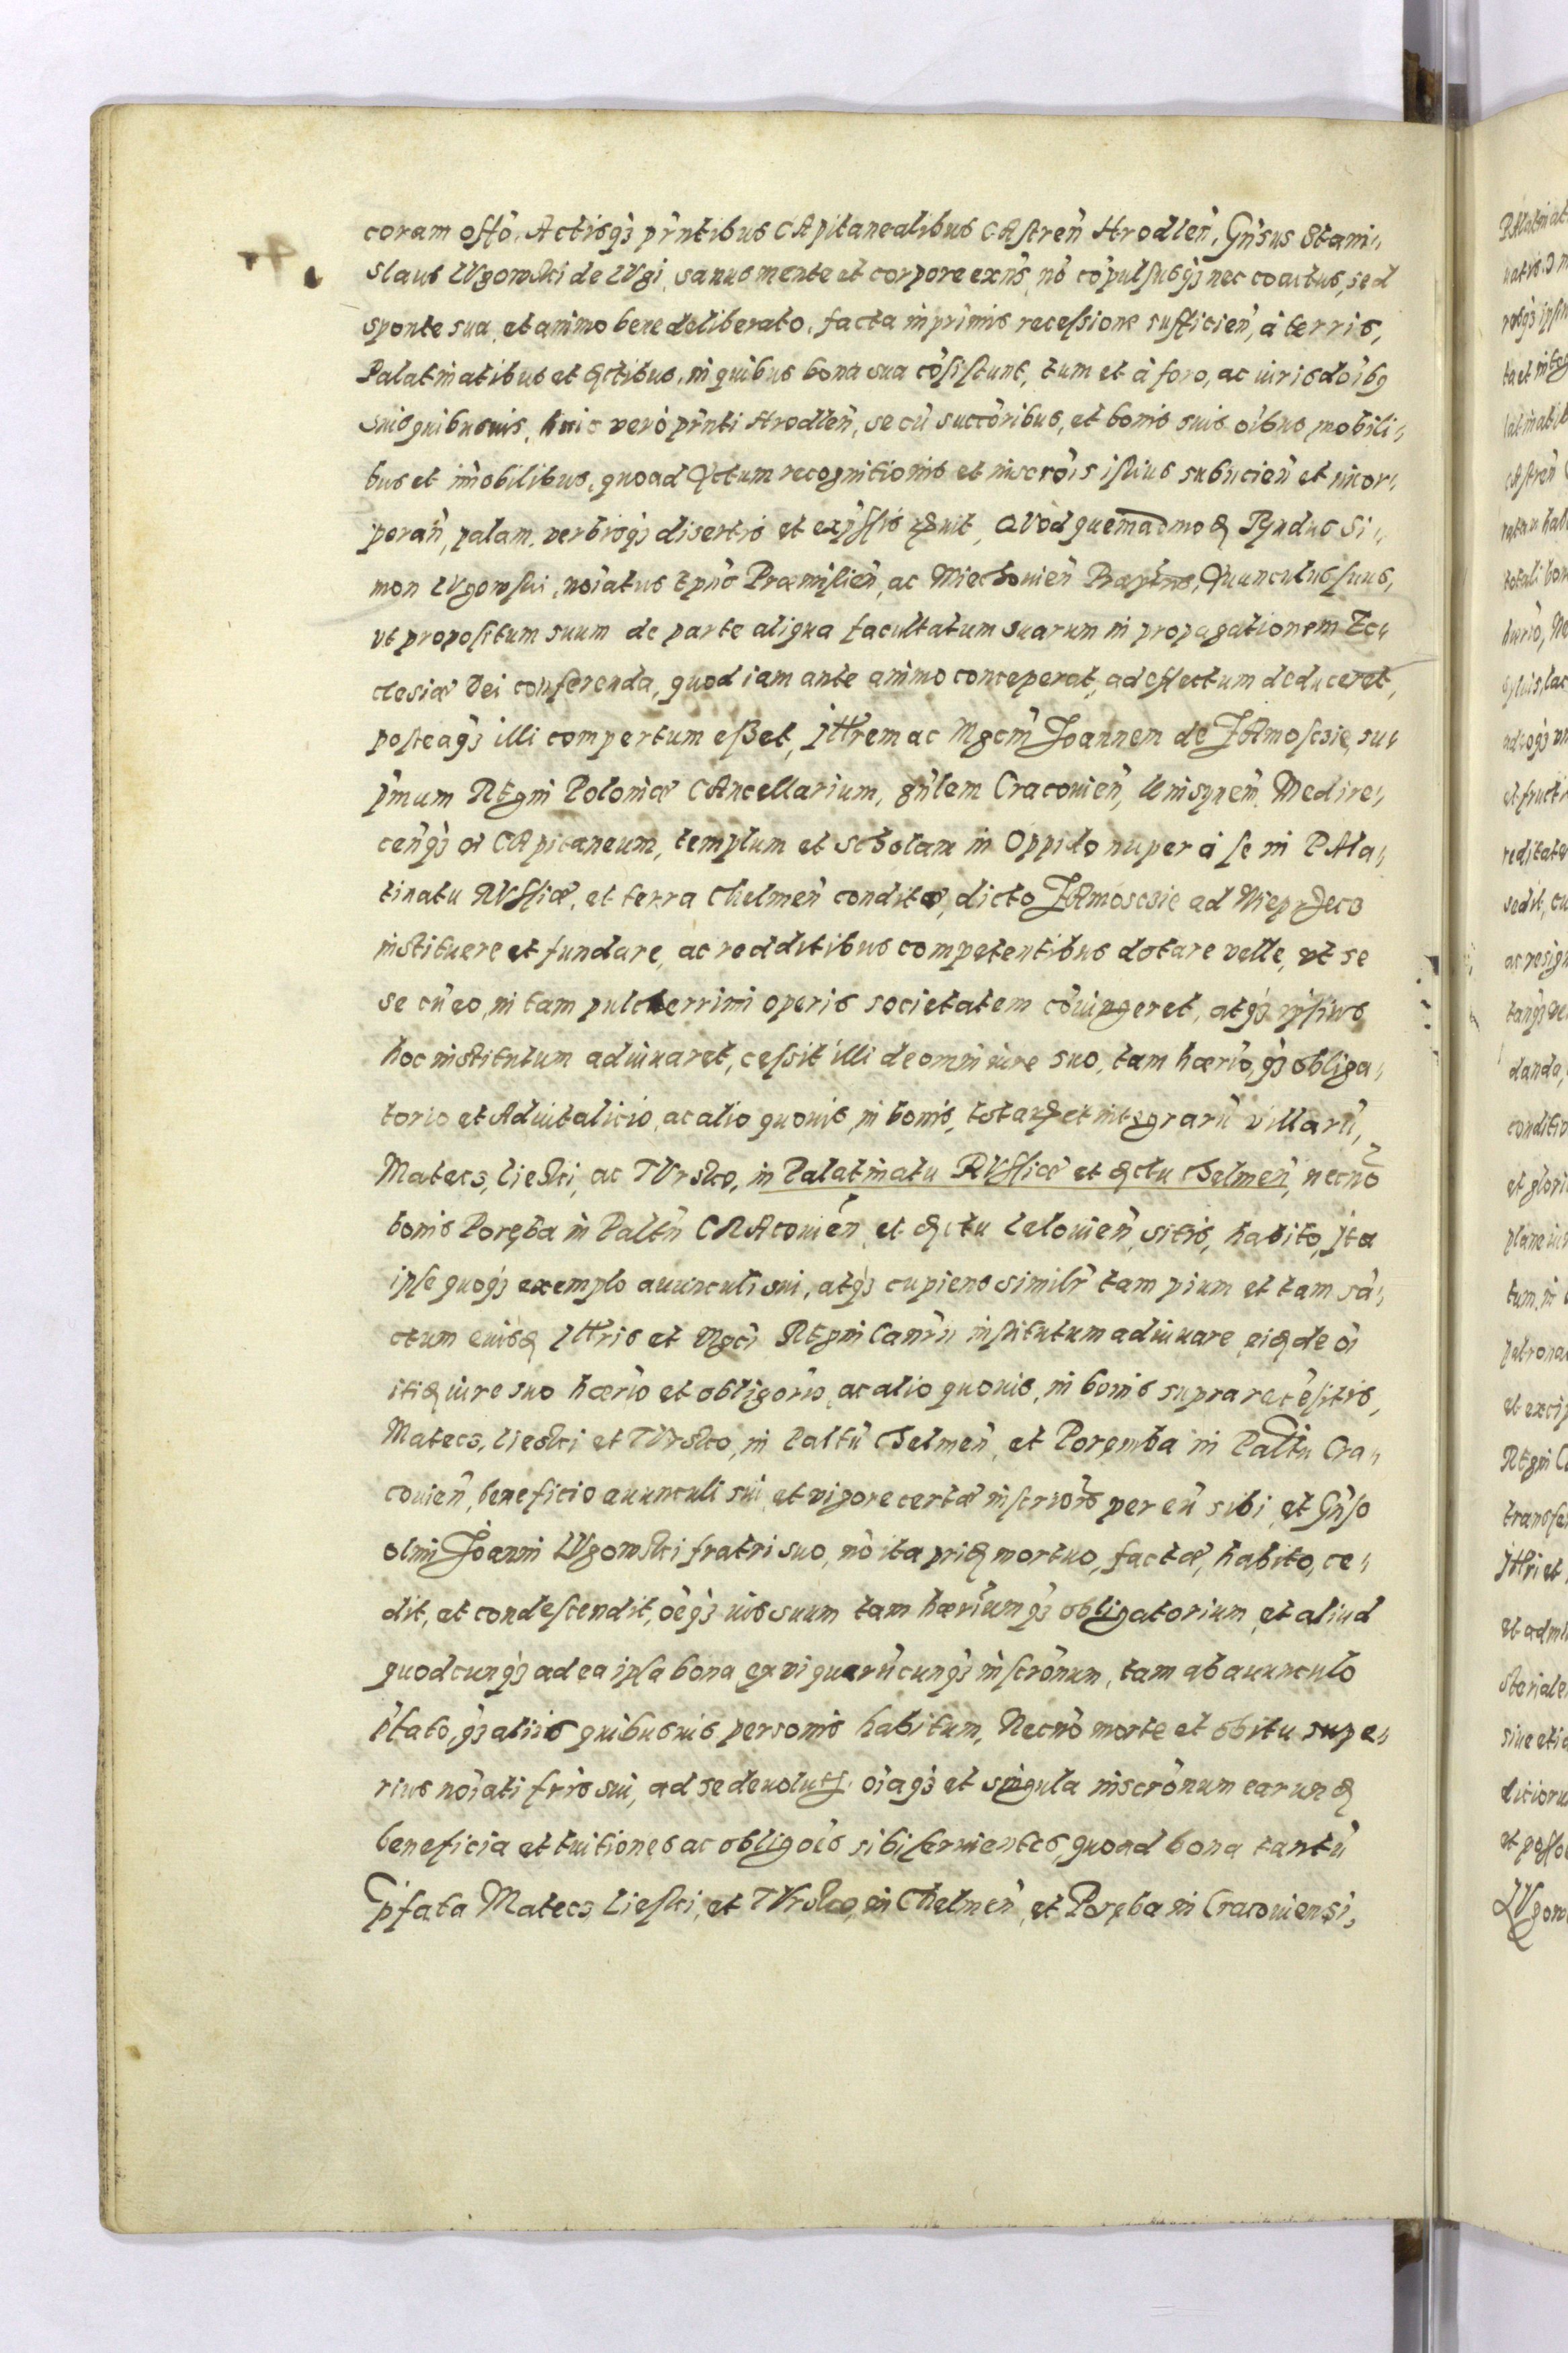 coram offō, Actisq3 pr̄ntibus CApitanealibus CAstreñ Hrodleñ, Gñsus Stani„
slaus LUgowski de LUgi, sanus mente et corpore exñs, nō cōpulsusq3 nec coactus, sed
sponte sua, et animo bene deliberato, facta inprimis recessione sufficieñ, à terris,
Palatinatibus et Dctibus, in quibus bona sua cōsistunt, tum et à foro, ac iurisdōibq
suis quibusuis, huic verò pr̄nti Hrodleñ, se cū succōribus, et bonis suis oībus mobili„
bus et im̄obilibus, quoad Actum recognitionis et inscrōis istius subijcieñ et incor„
poran̄, palam, verbisq3 disertis et expr̄ssis , QVod quemadmo Rn̄dus Si„
mon LUgowski, noīatus Epūs Præmislieñ, ac Miechouieñ Præptus, Auunculus suus,
vt propositum suum de parte aliqua facultatum suarum in propagationem Ec„
clesiæ Dei conferenda, quod iam ante animo conceperat, ad effectum deduceret,
posteaq3 illi compertum eßet, Jllrem ac Mgcm̄ Joannem de ZAmoscie, su„
pm̄um REgni Poloniæ CAncellarium, gn̄lem Cracouieñ, Medire„
ceñq3 CApitaneum, templum et scholam in Oppido nuper à se in PAla„
tinatu RUssiæ, et terra Chelmeñ condito, dicto ZAmoscie ad Wieprzecz
instituere et fundare, ac redditibus competentibus dotare velle, vt se
se cū eo, in tam pulcherrimi operis societatem cōiungeret, atq3 ipsius
hoc institutum adiuuaret, cessit illi de omni iure suo, tam hærio, q3 obliga„
torio et Aduitalicio, ac alio quouis, in bonis, totar et integrarū villarū,
Matecz, lieski, ac TUrsko, in Palatinatu RUssiæ et Dctu Chelmeñ, necnō
bonis Poręba in Paltū CRAcouieñ et Dctu Lelouieñ, sitis, habito, Jta
ipse quoq3 exemplo auunculi sui, atq3 cupiens simili tam pium et tam sā„
ctum eiusd Jllris et Mgci REgni Canrii institutum adiuuare, eid de oī
itid iure suo hærio et obligorio, ac alio quouis, in bonis supra recēsitis,
Matecz, lieski et TUrsko, in Paltū Chelmeñ, et Poręmba in Paltū Cra„
couieñ, beneficio auunculi sui, et vigore certæ inscriōis per eū sibi, et Gn̄so
olim Joanni LUgowski fratri suo, nō ita prid mortuo, factæ, habito, ce„
dit, et condescendit, oēq3 ius suum tam hærium q3 obligatorium, et aliud
quodcunq3 ad ea ipsa bona, ex vi quarūcunq3 inscrōnum, tam ab auunculo
ptato, q3 alijs quibusuis personis habitum, Necnō morte et obitu supe„
rius noīati frīs sui, ad se deuolut, oīaq3 et singula inscrōnum earund
beneficia et tuitiones ac obligoēs sibi seruientes, quoad bona tantū
pfata Matecz, lieski, et TUrsko, in Chelmeñ, et Poręba in Cracouiensi,